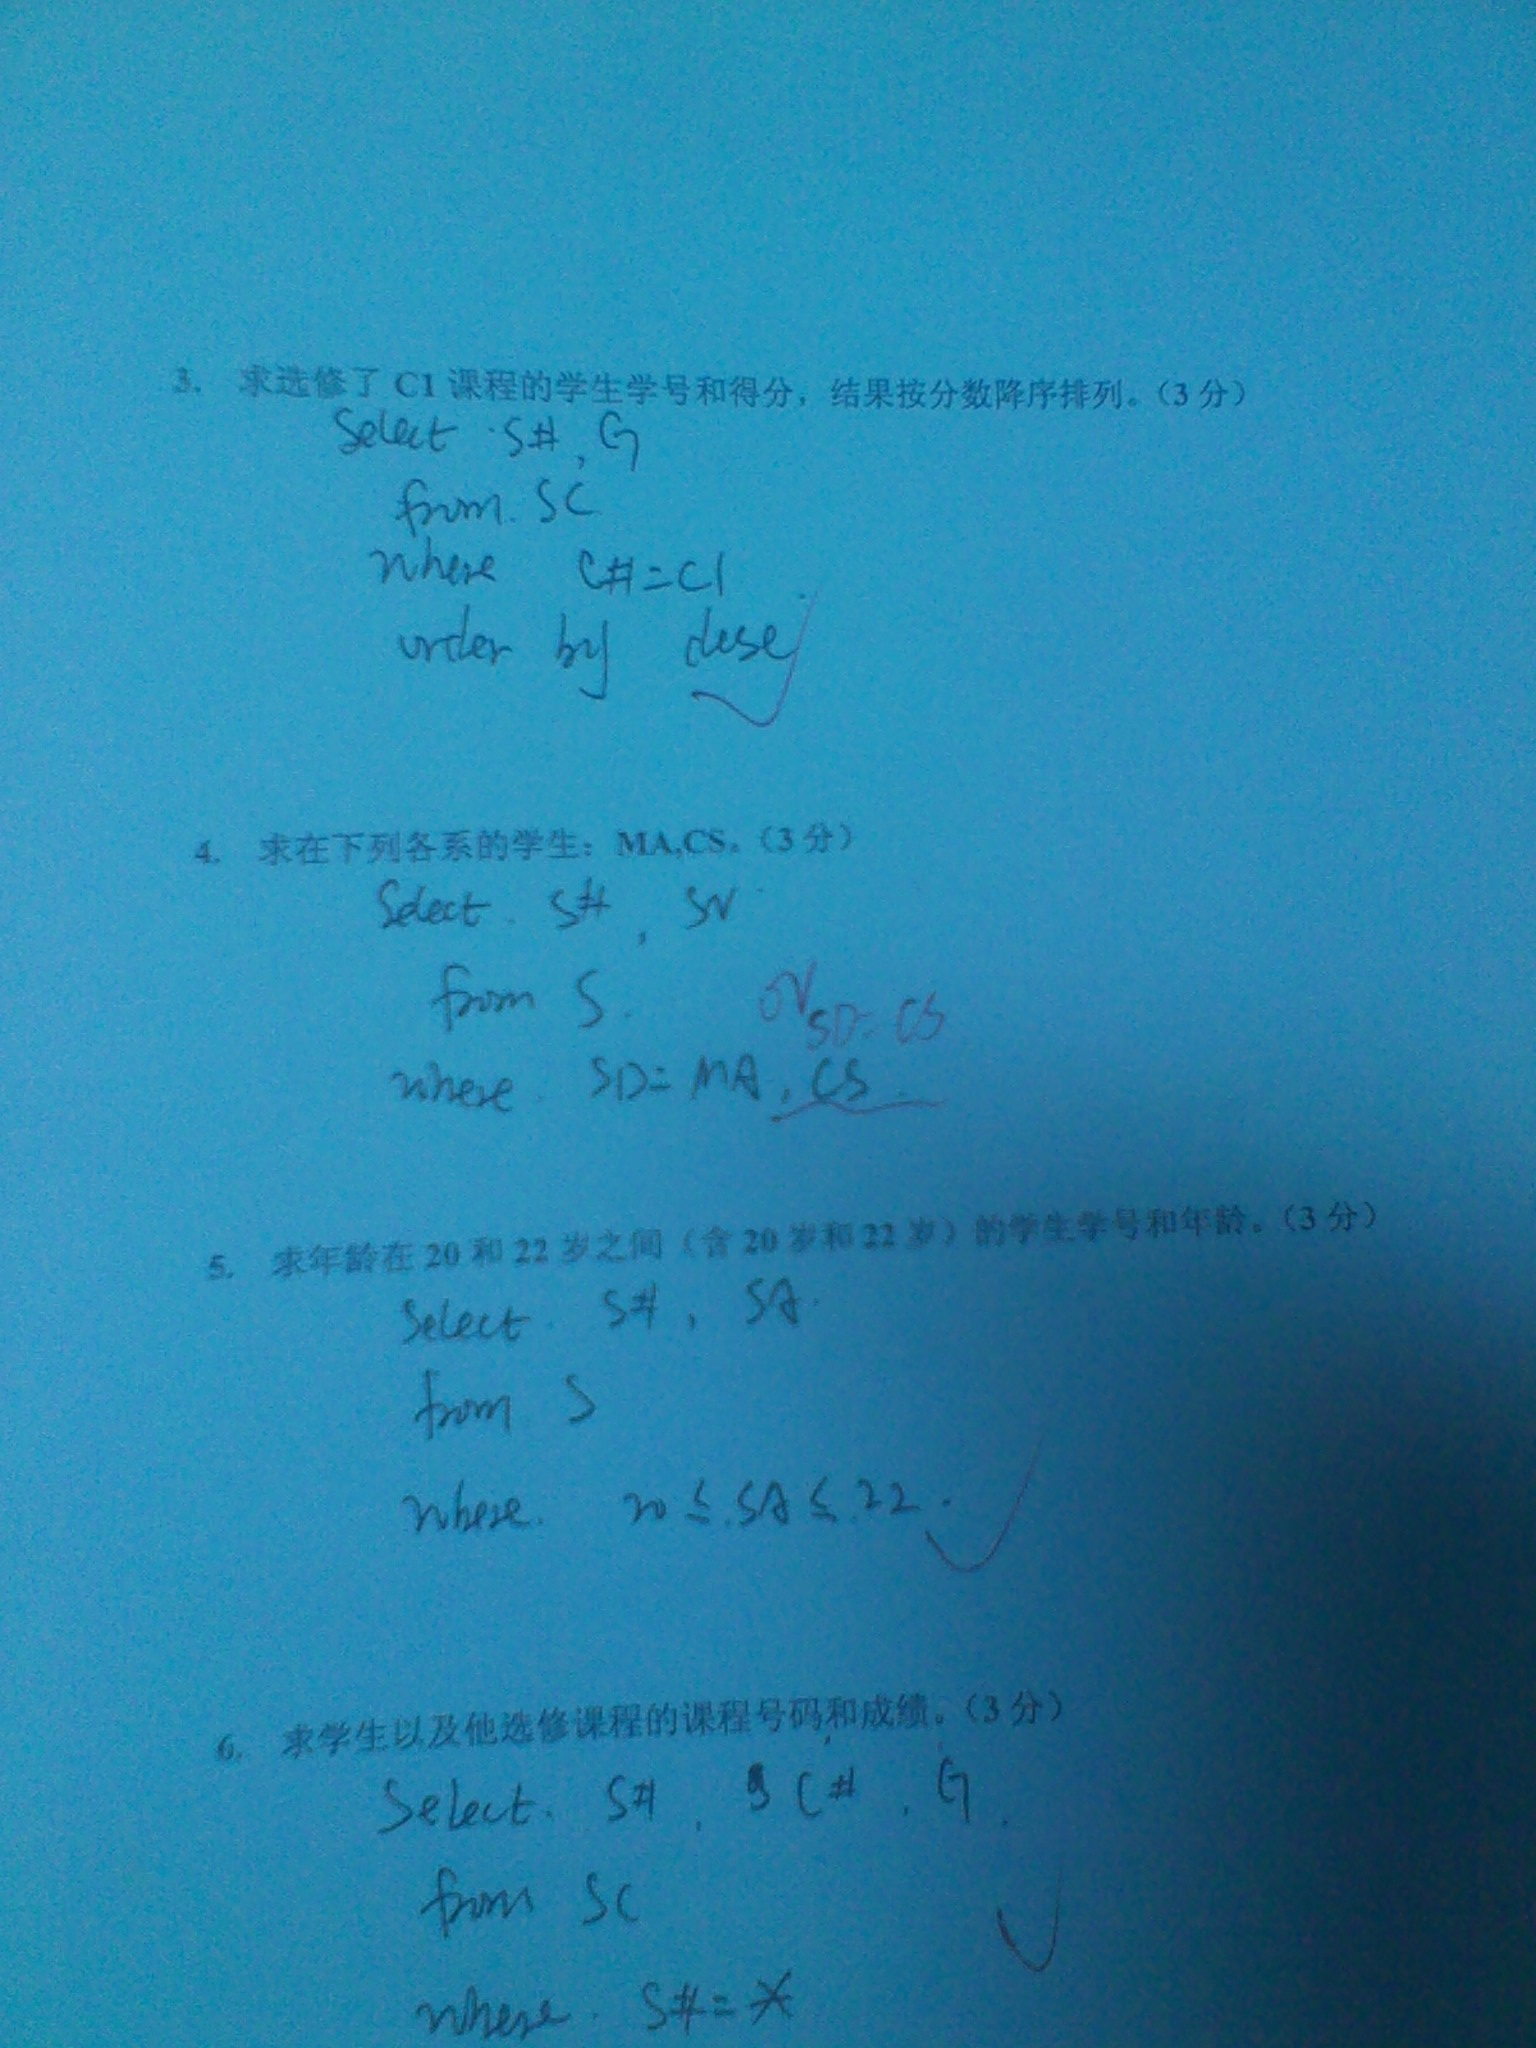 3. 求选修了 C1 课程的学生学号和得分，结果按分数降序排列。（3 分）
Select S#, G
from SC
where C#=C1
order by dese
4. 求在下列各系的学生：MA,CS。（3 分）
Select S#, SN
from S.
or SD=CS
where SD=MA, CS.
5. 求年龄在 20 和 22 岁之间（含 20 岁和 22 岁）的学生学号和年龄。（3 分）
Select S#, SA.
from S
where. 20≤SA≤22.
6. 求学生以及他选修课程的课程号码和成绩。（3 分）
Select. S#, C#, G.
from SC
where. S#=*